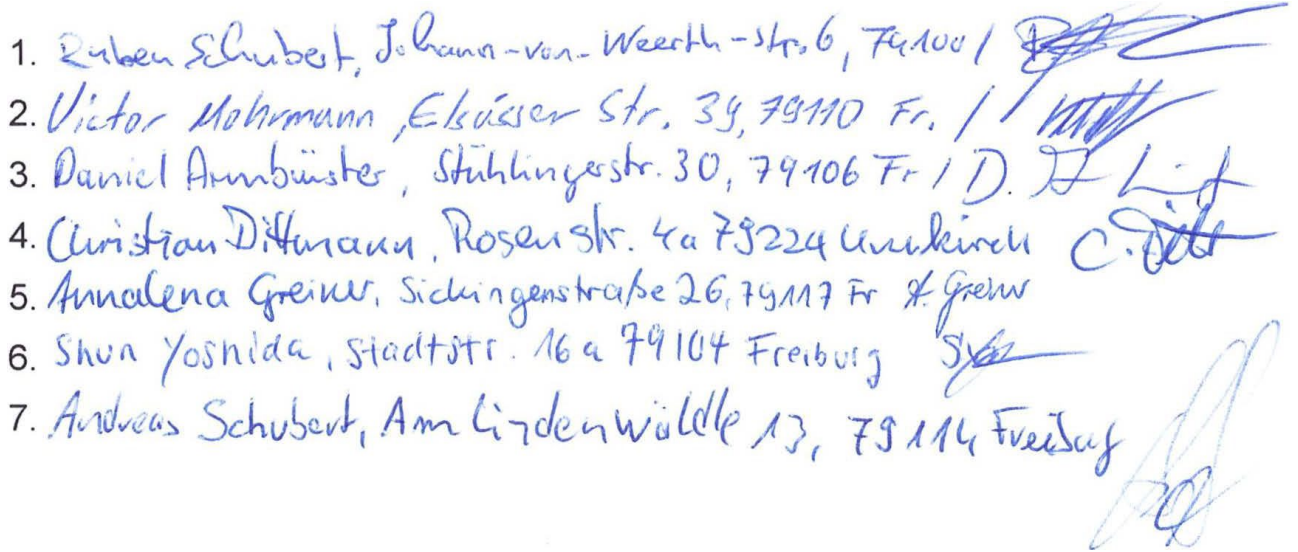 1. Ruben Schubert, Johann-von-Weerth-Str. 6, 79100 /
2. Victor Mohrmann, Elsässer Str. 39, 79110 Fr. /
3. Daniel Armbüster, Stühlingerstr. 30, 79106 Fr / D.
4. Christian Dittmann, Rosenstr. 4a 79224 Umkirch C.
5. Annalena Greiner, Sickingenstraße 26, 79117 Fr A. Greiner
6. Shun Yoshida, Stadtstr. 16a 79104 Freiburg
7. Andreas Schubert, Am Lindenwäldle 13, 79114 Freiburg